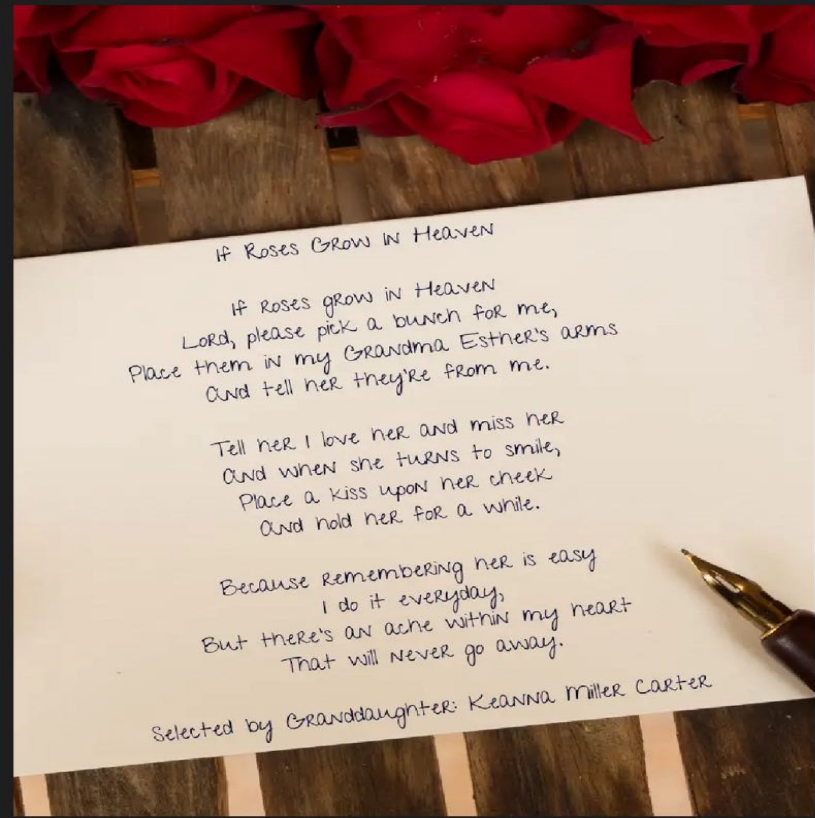 If Roses Grow in Heaven
If Roses grow in Heaven
Lord, please pick a bunch for me,
Place them in my Grandma Esther's arms
and tell her they're from me.
Tell her I love her and miss her
and when she turns to smile,
Place a kiss upon her cheek
and hold her for a while.
Because remembering her is easy
I do it everyday,
But there's an ache within my heart
That will never go away.
Selected by Granddaughter: Keanna Miller Carter